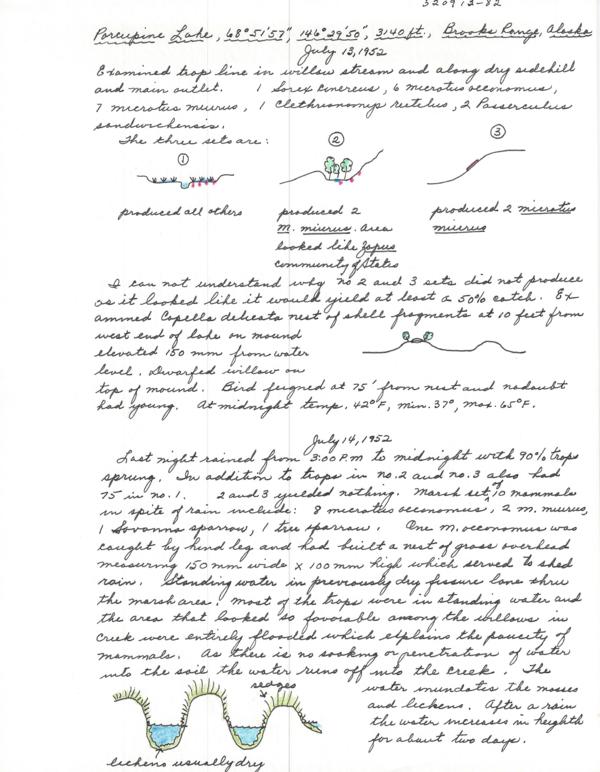 320913-82
Porcupine Lake, 68°51'57", 146°29'50", 3140 ft., Brooks Range, Alaska
July 13, 1952
Examined trap line in willow stream and along dry sidehill
and main outlet. 1 Sorex cinereus, 6 microtus oeconomus,
7 microtus miurus, 1 Clethrionomys rutilus, 2 Passerculus
sandwichensis.
The three sets are:
1
2
3
produced all others
produced 2
M. miurus. area
looked like Zapus
community of States
produced 2 microtus
miurus
I can not understand why no 2 and 3 sets did not produce
as it looked like it would yield at least a 50% catch. Ex
ammined Capella delicata nest of shell fragments at 10 feet from
west end of lake on mound
elevated 150 mm from water
level. Dwarfed willow on
top of mound. Bird feigned at 75' from nest and nodoubt
had young. At midnight temp. 42°F, min. 37°, max. 65°F.
July 14, 1952
Last night rained from 3:00 P.M to midnight with 90% traps
sprung. In addition to traps in no. 2 and no. 3 also had
75 in no. 1. 2 and 3 yielded nothing. Marsh set, of 10 mammals
in spite of rain include: 8 microtus oeconomus, 2 m. miurus,
1 Savanna sparrow, 1 tree sparrow. One M. oeconomus was
caught by hind leg and had built a nest of grass overhead
measuring 150 mm wide x 100 mm high which served to shed
rain. Standing water in previously dry fissure lane thru
the marsh area. Most of the traps were in standing water and
the area that looked so favorable among the willows in
Creek were entirely flooded which explains the paucity of
mammals. As there is no soaking or penetration of water
into the soil the water runs off into the creek. The
sedges
water inundates the mosses
and lickens. After a rain
the water increases in heighth
for about two days.
lickens usually dry